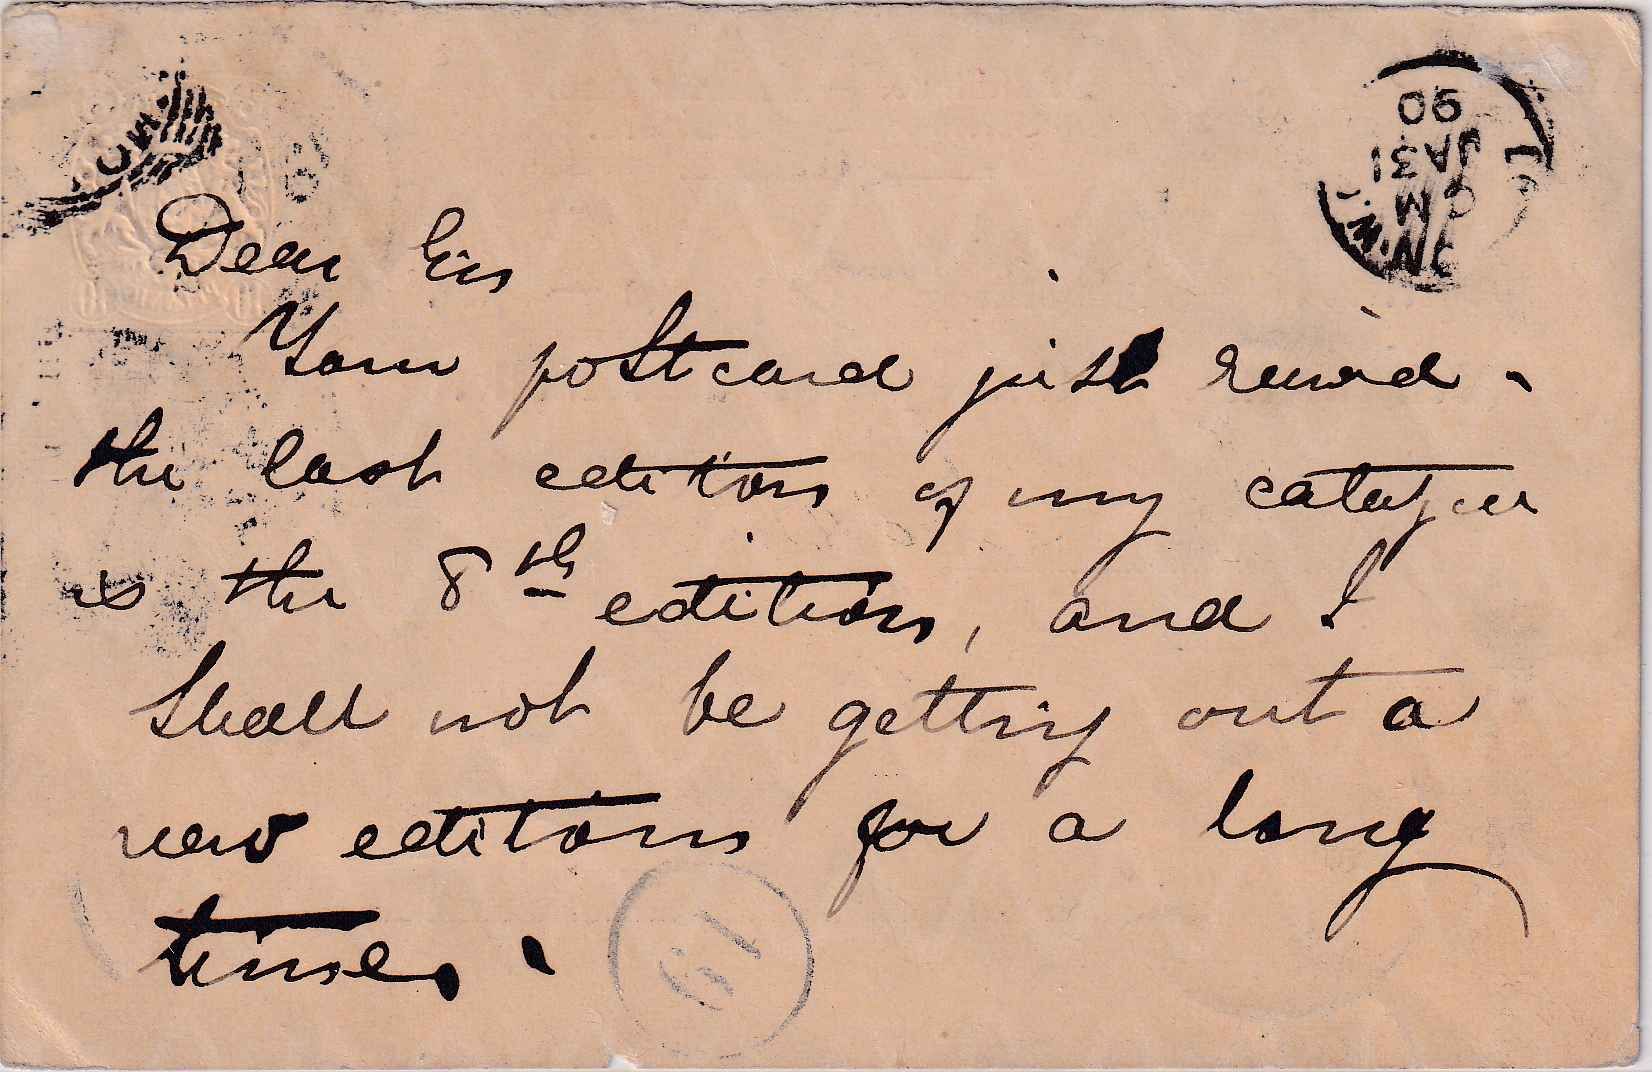 Dear Sir
Your postcard just receivd.
the last edition of my catalogue
is the 8th edition, and I
shall not be getting out a
new edition for a long
time.
90
JA31
19